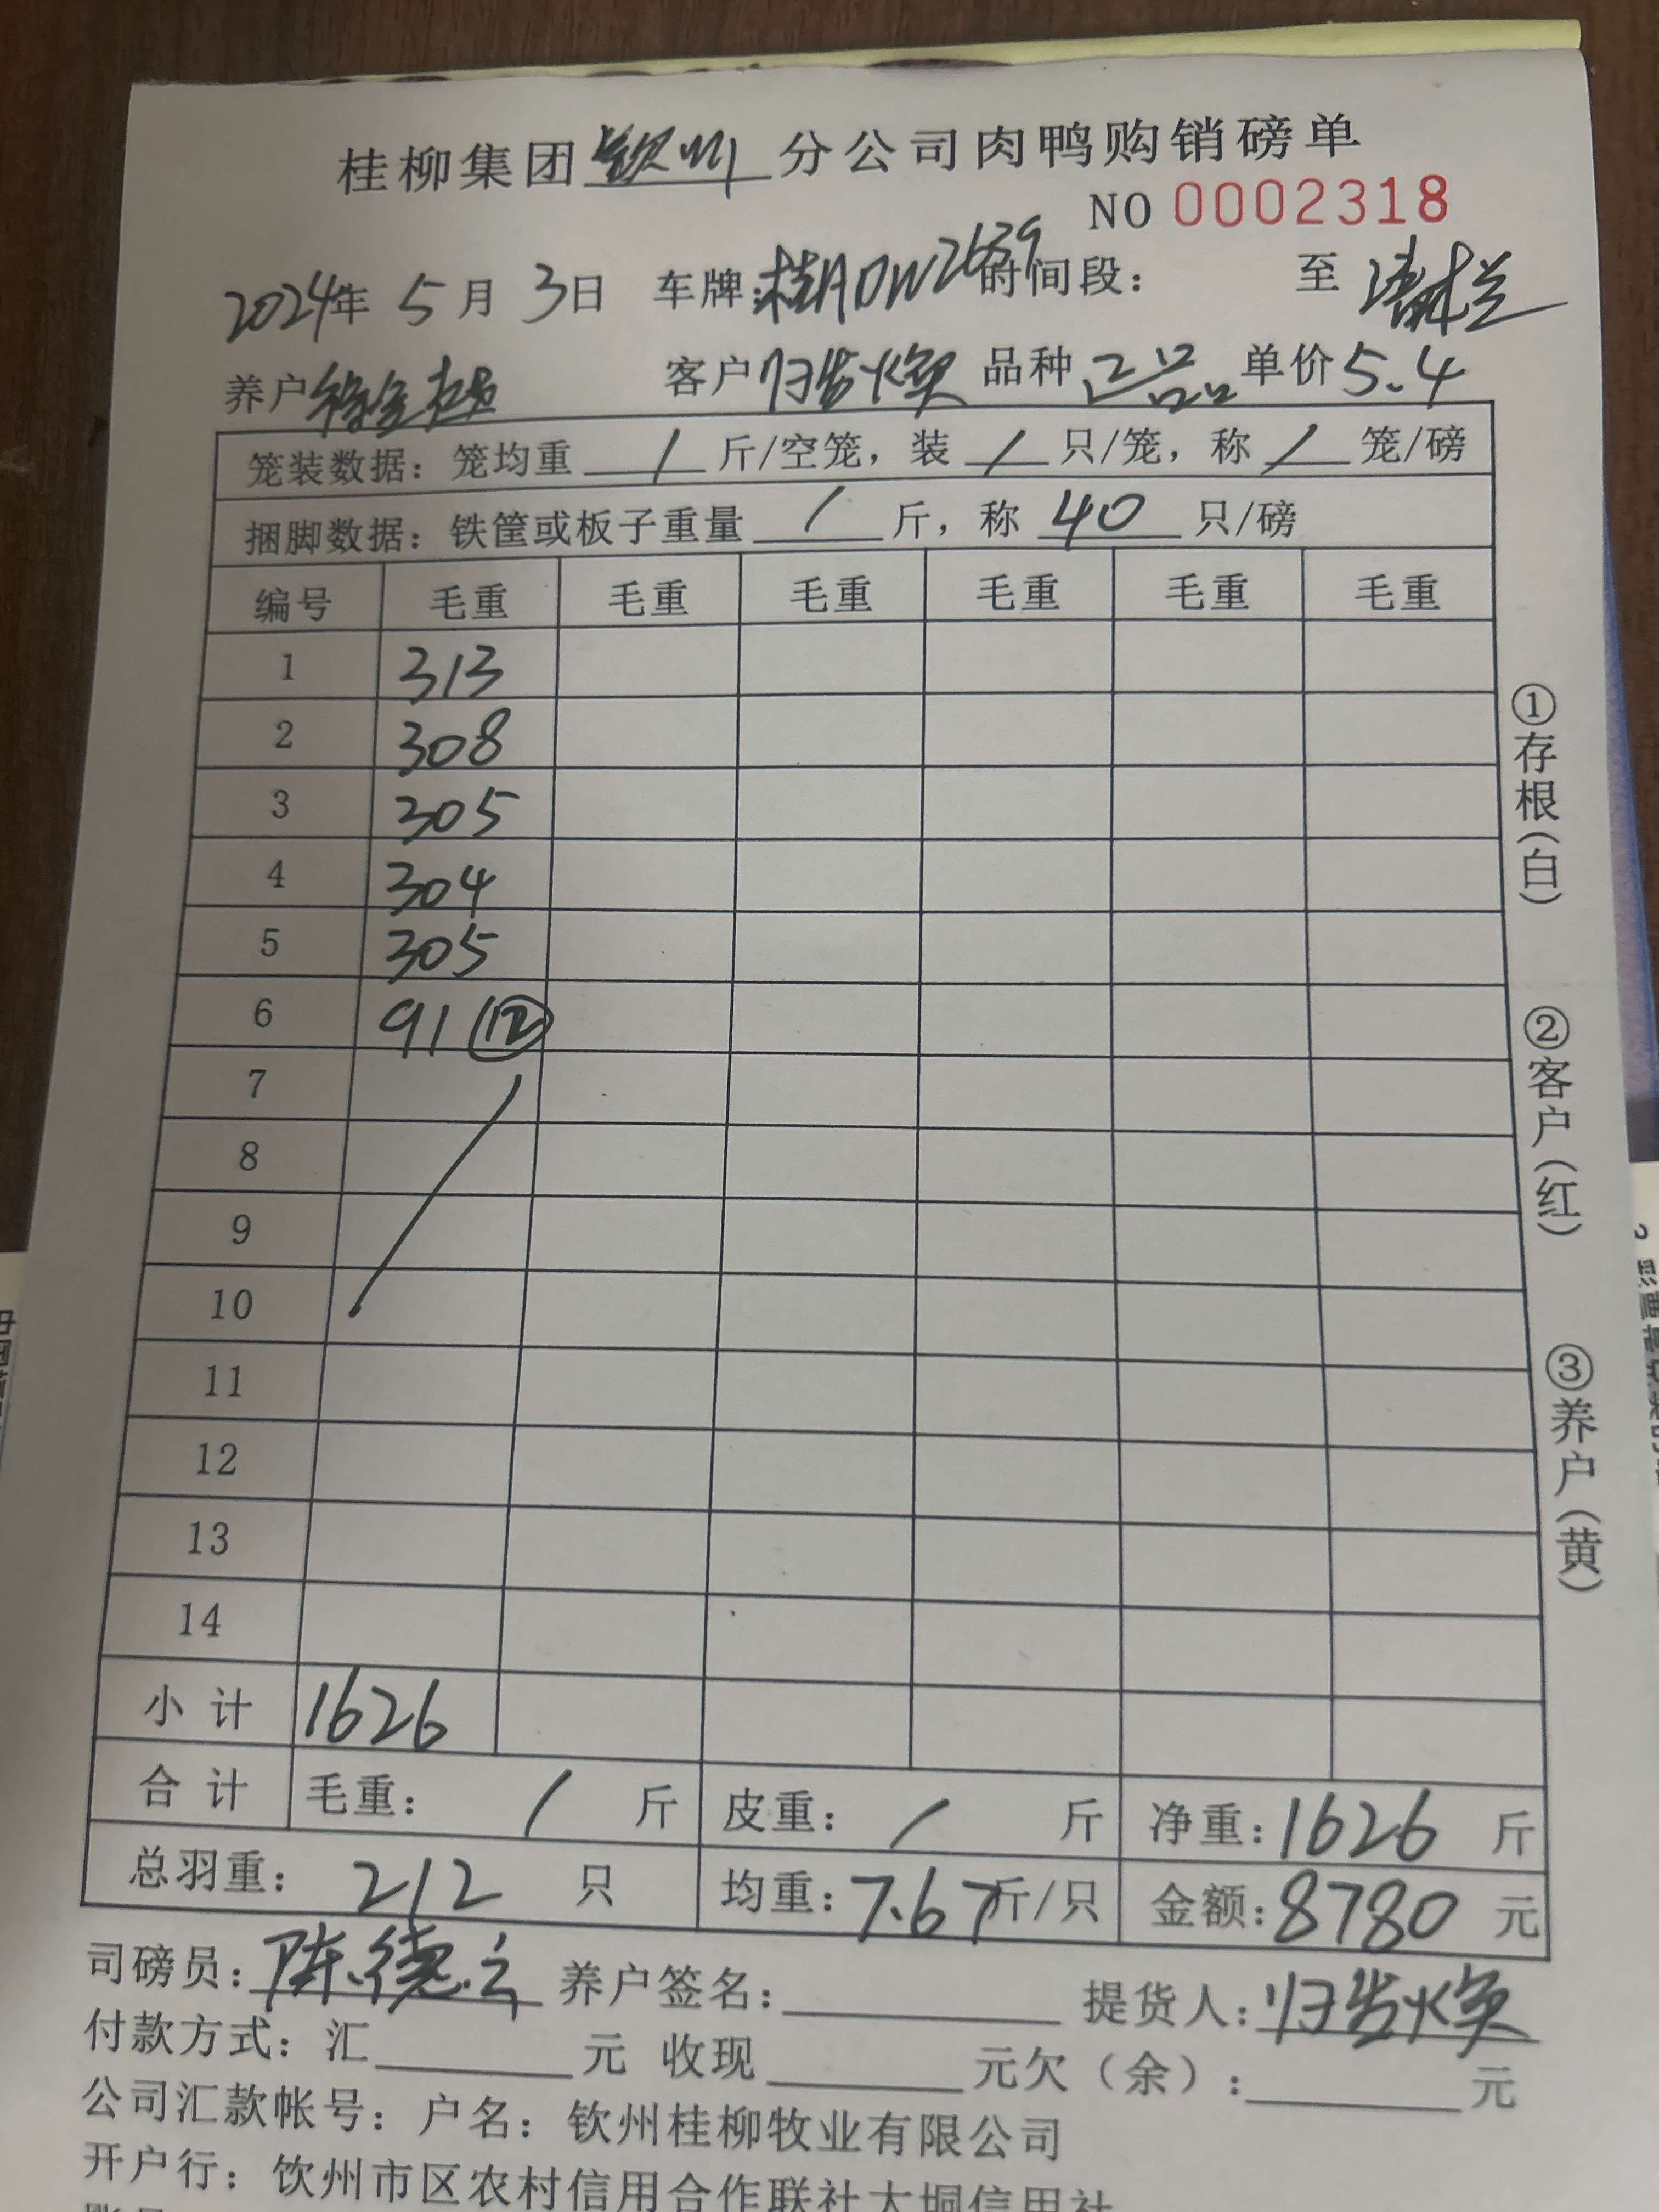 桂柳集团钦州分公司肉鸭购销磅单
NO 0002318
2024年 5月 3日 车牌:桂A0W2639 时间段: 至清栏
养户 客户归发焕 品种正品 单价5.4
笼装数据: 笼均重 / 斤/空笼, 装 / 只/笼, 称 / 笼/磅
捆脚数据: 铁筐或板子重量 / 斤, 称 40 只/磅
编号 毛重 毛重 毛重 毛重 毛重 毛重
1 313
2 308
3 305
4 304
5 305
6 91 ⑫
7
8
9
10
11
12
13
14
小计 1626
合计 毛重: / 斤 皮重: / 斤 净重:1626 斤
总羽重: 212 只 均重:7.67斤/只 金额:8780 元
司磅员:陈德立 养户签名: 提货人:归发焕
付款方式: 汇 元 收现 元欠(余): 元
公司汇款帐号: 户名: 钦州桂柳牧业有限公司
开户行: 钦州市区农村信用合作联社大垌信用社
①存根(白)
②客户(红)
③养户(黄)